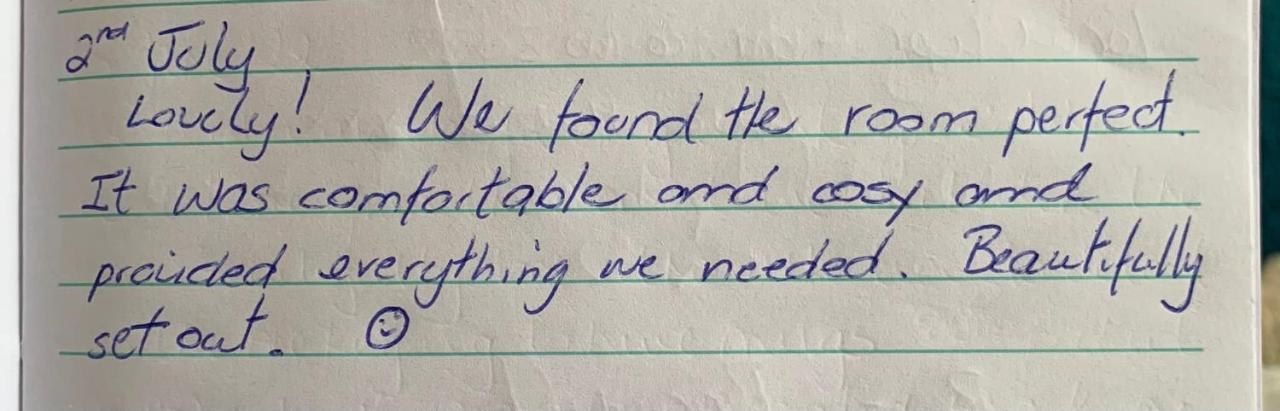 2nd July
Lovely! We found the room perfect.
It was comfortable and cosy and
provided everything we needed. Beautifully
set out. ☺